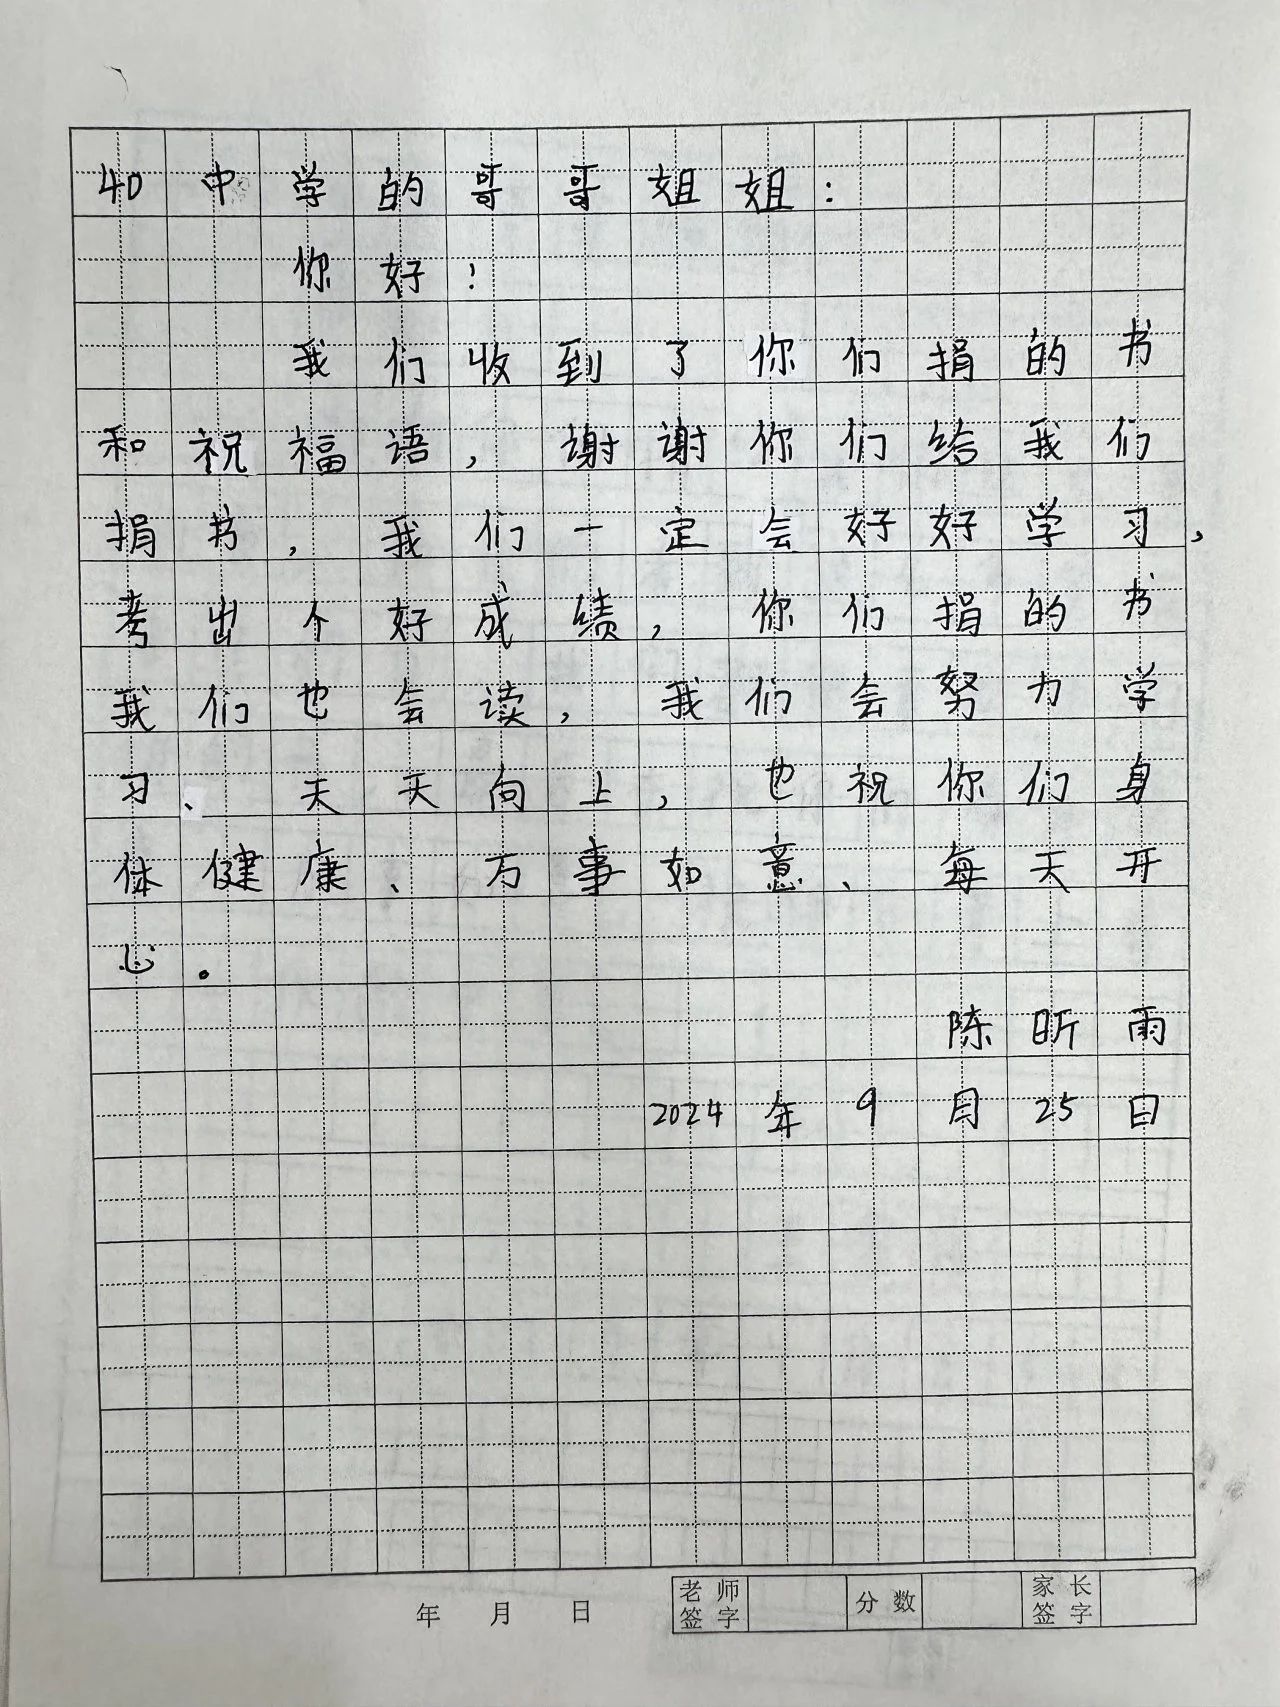 40中学的哥哥姐姐:
你好!
我们收到了你们捐的书
和祝福语,谢谢你们给我们
捐书,我们一定会好好学习,
考出个好成绩,你们捐的书
我们也会读,我们会努力学
习、天天向上,也祝你们身
体健康、万事如意、每天开
心。
陈昕雨
2024年9月25日
年 月 日 老师签字 分数 家长签字